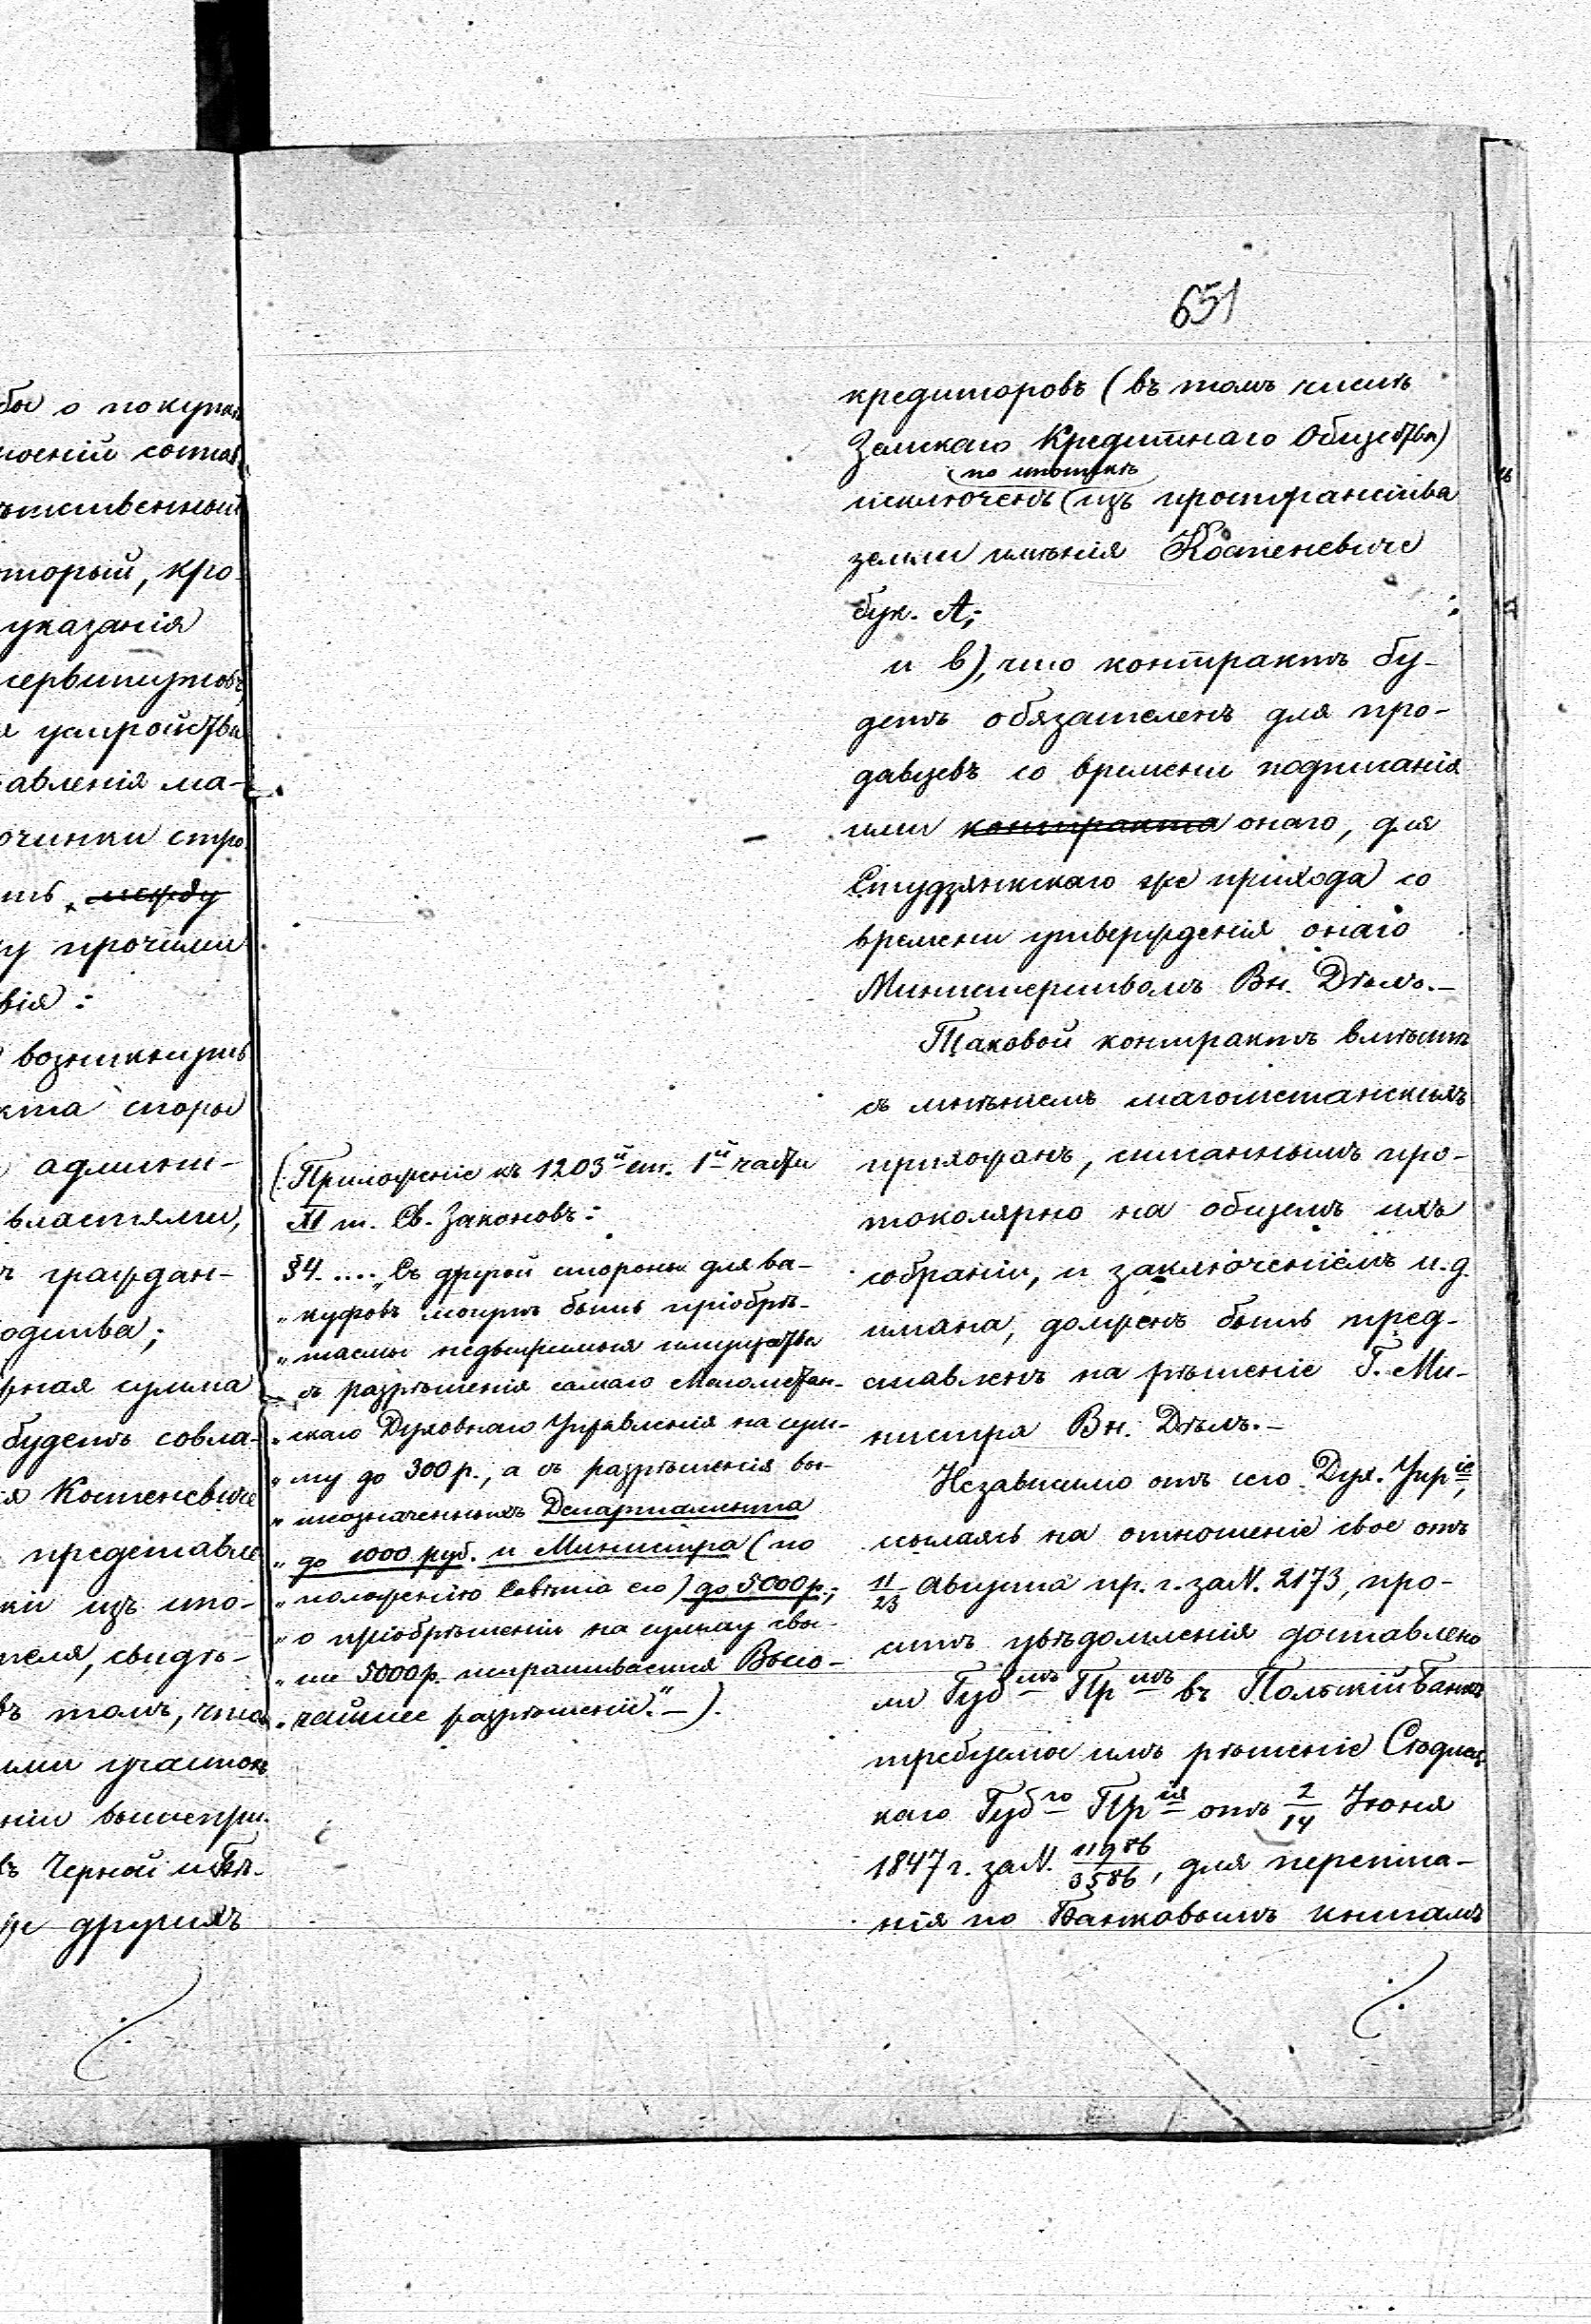 651
кредиторовъ (въ томъ числѣ
Земскаго Кредитнаго Общества)
(по ипотекѣ
исключенъ (изъ пространства
земли имѣнія Костеневиче
бук. А;
и в), что контрактъ бу-
детъ обязателенъ для про-
давцевъ со времени подписанія
ими контракта онаго, для
Студзянскаго же прихода со
времени утвержденія онаго
Министерствомъ Вн. Дѣлъ.–
Таковой контрактъ вмѣстѣ
съ мнѣніемъ магометанскихъ
прихожанъ, писаннымъ про-
токолярно на общемъ ихъ
собраніи, и заключеніемъ и. д.
имама, долженъ быть пред-
ставленъ на рѣшеніе Г. Ми-
нистра Вн. Дѣлъ.–
Независимо отъ сего Дух. Упріе,
ссылаясь на отношеніе свое отъ
11/23 Августа пр. г. за N. 2173, про-
ситъ увѣдомленія доставлено
ли Губмъ Прмъ въ Польскій Банкъ
требуемое имъ рѣшеніе Сѣдлец-
каго Губго Прія отъ 2/14 Іюня
1847 г. за N. 11986/3586, для переписа-
нія по Банковымъ книгамъ
(Приложеніе къ 1203й ст. 1й части
XI т. Св. Законовъ:
§4. .... „Съ другой стороны для ва-
„куфовъ могутъ быть пріобрѣ-
„таемы недвижимыя имущества
„съ разрѣшенія самаго Магометан-
„скаго Духовнаго Управленія на сум-
„му до 300 р., а съ разрѣшенія вы-
„шеозначенныхъ Департамента
„до 1000 руб. и Министра (по
„положенію Совѣта его) до 5000 р.;
„о пріобрѣтеніи на сумму свы-
„ше 5000 р. испрашивается Высо-
„чайшее разрѣшеніе.“–).
о покупкѣ
который, кро-
указанія
сервитутовъ
устройства
ма-
починки стро
между
прочими
:
возникнуть
споры
админи-
властями,
граждан-
сумма
будетъ совла-
Костеневиче
представле
изъ ипо-
свидѣ-
въ томъ, что
ими участокъ
вышепри-
Черной и Бѣ-
другихъ